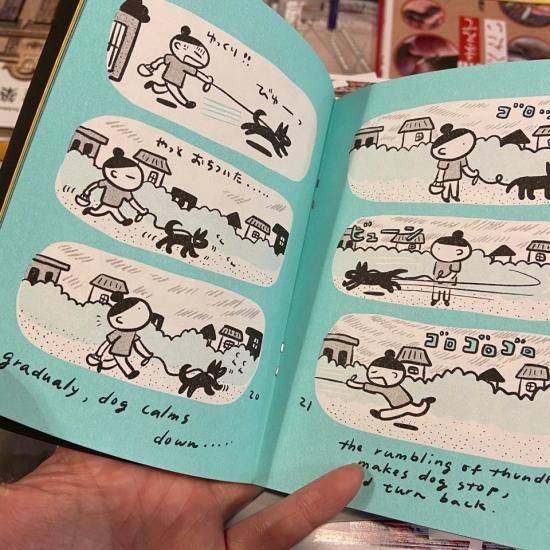 ゆっくり!!
びゅーっ
やっと おちついた.....
gradualy, dog calms
down.....
20
ゴロッ
ビューーン
ゴロゴロゴロ
21
the rumbling of thunde
makes dog stop,
d turn back.